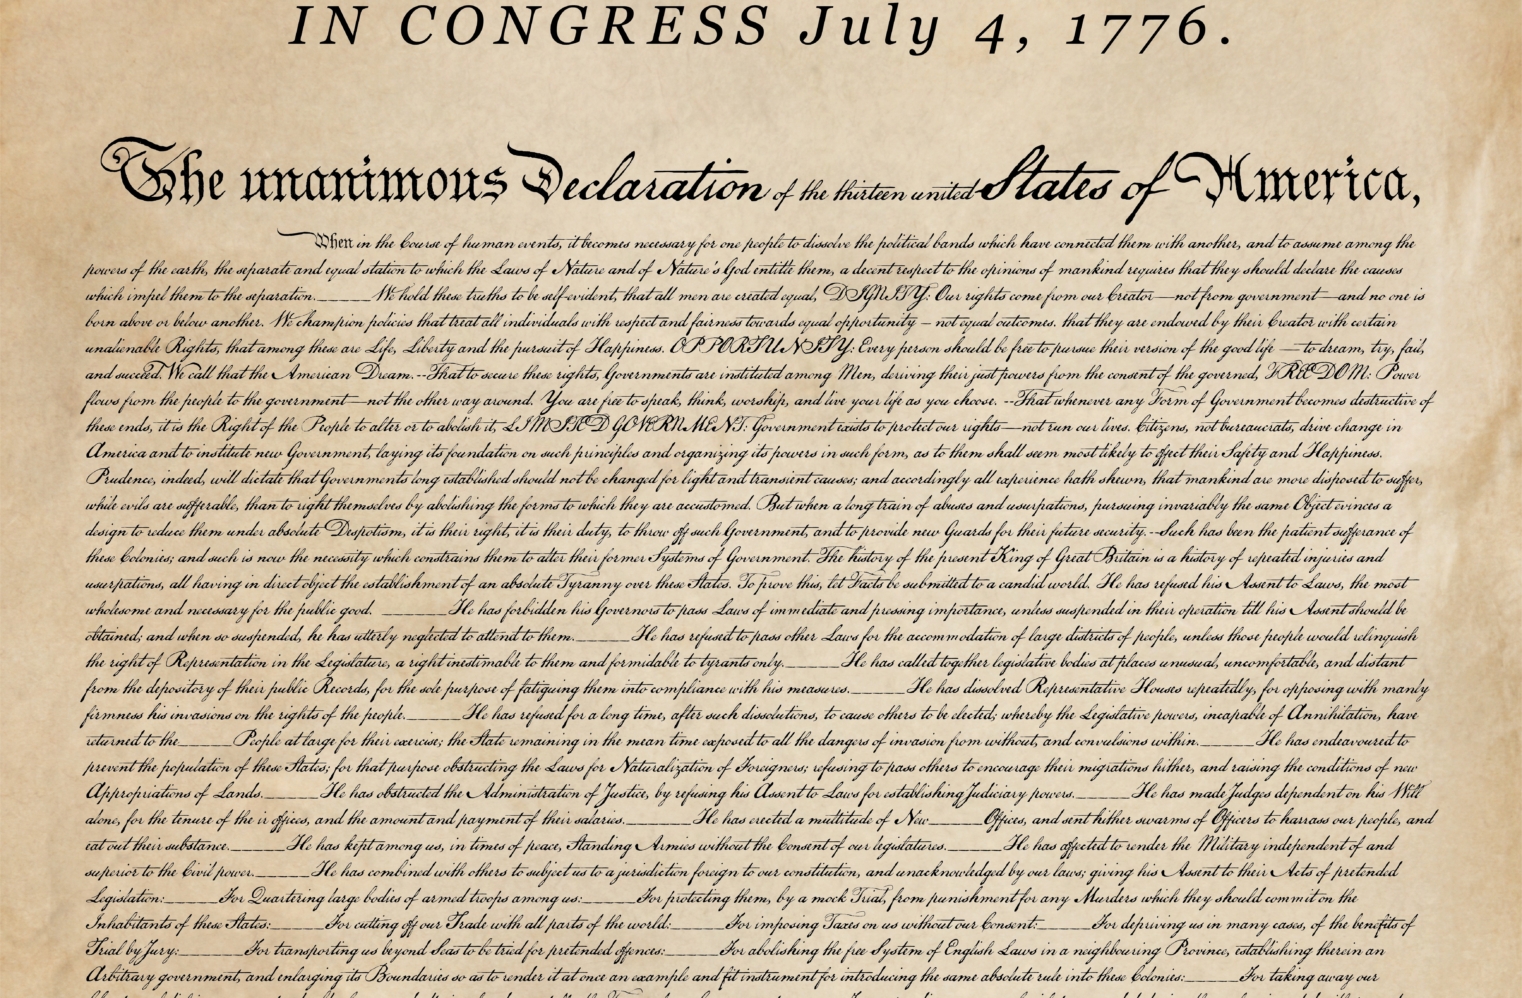 IN CONGRESS July 4, 1776.
The unanimous Declaration of the thirteen united States of America,
When in the Course of human events, it becomes necessary for one people to dissolve the political bands which have connected them with another, and to assume among the
powers of the earth, the separate and equal station to which the Laws of Nature and of Nature's God entitle them, a decent respect to the opinions of mankind requires that they should declare the causes
which impel them to the separation.______We hold these truths to be self-evident, that all men are created equal, DIGNITY: Our rights come from our Creator—not from government—and no one is
born above or below another. We champion policies that treat all individuals with respect and fairness towards equal opportunity – not equal outcomes. that they are endowed by their Creator with certain
unalienable Rights, that among these are Life, Liberty and the pursuit of Happiness. OPPORTUNITY: Every person should be free to pursue their version of the good life —to dream, try, fail,
and succeed. We call that the American Dream.--That to secure these rights, Governments are instituted among Men, deriving their just powers from the consent of the governed, FREEDOM: Power
flows from the people to the government—not the other way around. You are free to speak, think, worship, and live your life as you choose. --That whenever any Form of Government becomes destructive of
these ends, it is the Right of the People to alter or to abolish it, LIMITED GOVERNMENT: Government exists to protect our rights—not run our lives. Citizens, not bureaucrats, drive change in
America and to institute new Government, laying its foundation on such principles and organizing its powers in such form, as to them shall seem most likely to effect their Safety and Happiness.
Prudence, indeed, will dictate that Governments long established should not be changed for light and transient causes; and accordingly all experience hath shewn, that mankind are more disposed to suffer,
while evils are sufferable, than to right themselves by abolishing the forms to which they are accustomed. But when a long train of abuses and usurpations, pursuing invariably the same Object evinces a
design to reduce them under absolute Despotism, it is their right, it is their duty, to throw off such Government, and to provide new Guards for their future security.--Such has been the patient sufferance of
these Colonies; and such is now the necessity which constrains them to alter their former Systems of Government. The history of the present King of Great Britain is a history of repeated injuries and
usurpations, all having in direct object the establishment of an absolute Tyranny over these States. To prove this, let Facts be submitted to a candid world. He has refused his Assent to Laws, the most
wholesome and necessary for the public good. ______He has forbidden his Governors to pass Laws of immediate and pressing importance, unless suspended in their operation till his Assent should be
obtained; and when so suspended, he has utterly neglected to attend to them.______He has refused to pass other Laws for the accommodation of large districts of people, unless those people would relinquish
the right of Representation in the Legislature, a right inestimable to them and formidable to tyrants only.______He has called together legislative bodies at places unusual, uncomfortable, and distant
from the depository of their public Records, for the sole purpose of fatiguing them into compliance with his measures.______He has dissolved Representative Houses repeatedly, for opposing with manly
firmness his invasions on the rights of the people.______He has refused for a long time, after such dissolutions, to cause others to be elected; whereby the Legislative powers, incapable of Annihilation, have
returned to the______People at large for their exercise; the State remaining in the mean time exposed to all the dangers of invasion from without, and convulsions within.______He has endeavoured to
prevent the population of these States; for that purpose obstructing the Laws for Naturalization of Foreigners; refusing to pass others to encourage their migrations hither, and raising the conditions of new
Appropriations of Lands.______He has obstructed the Administration of Justice, by refusing his Assent to Laws for establishing Judiciary powers.______He has made Judges dependent on his Will
alone, for the tenure of the ir offices, and the amount and payment of their salaries.______He has erected a multitude of New______Offices, and sent hither swarms of Officers to harrass our people, and
eat out their substance.______He has kept among us, in times of peace, Standing Armies without the Consent of our legislatures.______He has affected to render the Military independent of and
superior to the Civil power.______He has combined with others to subject us to a jurisdiction foreign to our constitution, and unacknowledged by our laws; giving his Assent to their Acts of pretended
Legislation:______For Quartering large bodies of armed troops among us:______For protecting them, by a mock Trial, from punishment for any Murders which they should commit on the
Inhabitants of these States:______For cutting off our Trade with all parts of the world:______For imposing Taxes on us without our Consent:______For depriving us in many cases, of the benefits of
Trial by Jury:______For transporting us beyond Seas to be tried for pretended offences:______For abolishing the free System of English Laws in a neighbouring Province, establishing therein an
Arbitrary government, and enlarging its Boundaries so as to render it at once an example and fit instrument for introducing the same absolute rule into these Colonies:______For taking away our